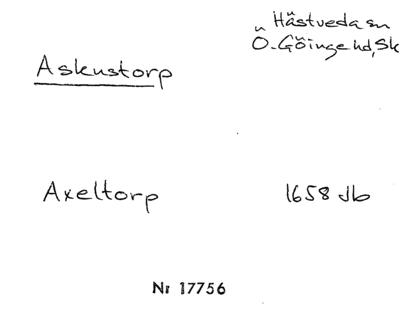 Hästveda sn
Ö. Göinge hd, Sk
Askustorp
Axeltorp 1658 Jb
Nr 17756